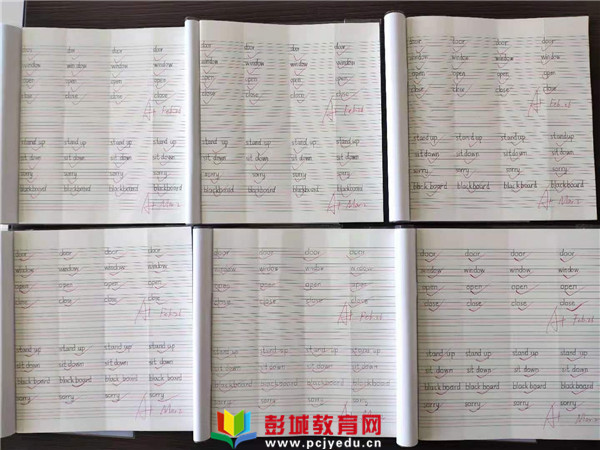 door door door door
window window window window
open open open open
close close close close
A+
stand up stand up stand up stand up
sit down sit down sit down sit down
sorry sorry sorry sorry
blackboard blackboard blackboard blackboard
A+
door door door door
window window window window
open open open open
close close close close
A+
stand up stand up stand up stand up
sit down sit down sit down sit down
sorry sorry sorry sorry
blackboard blackboard blackboard blackboard
A+
door door door door
window window window window
open open open open
close close close close
A+
stand up stand up stand up stand up
sit down sit down sit down sit down
sorry sorry sorry sorry
blackboard blackboard blackboard blackboard
A+
door door door door
window window window window
open open open open
close close close close
A+
stand up stand up stand up stand up
sit down sit down sit down sit down
black board black board black board black board
sorry sorry sorry sorry
A+
door door door door
window window window window
open open open open
close close close close
A+
stand up stand up stand up stand up
sit down sit down sit down sit down
blackboard blackboard blackboard blackboard
sorry sorry sorry sorry
A+
door door door door
window window window window
open open open open
close close close close
A+
stand up stand up stand up stand up
sit down sit down sit down sit down
blackboard blackboard blackboard blackboard
sorry sorry sorry sorry
A+
彭城教育网
www.pcjyedu.cn